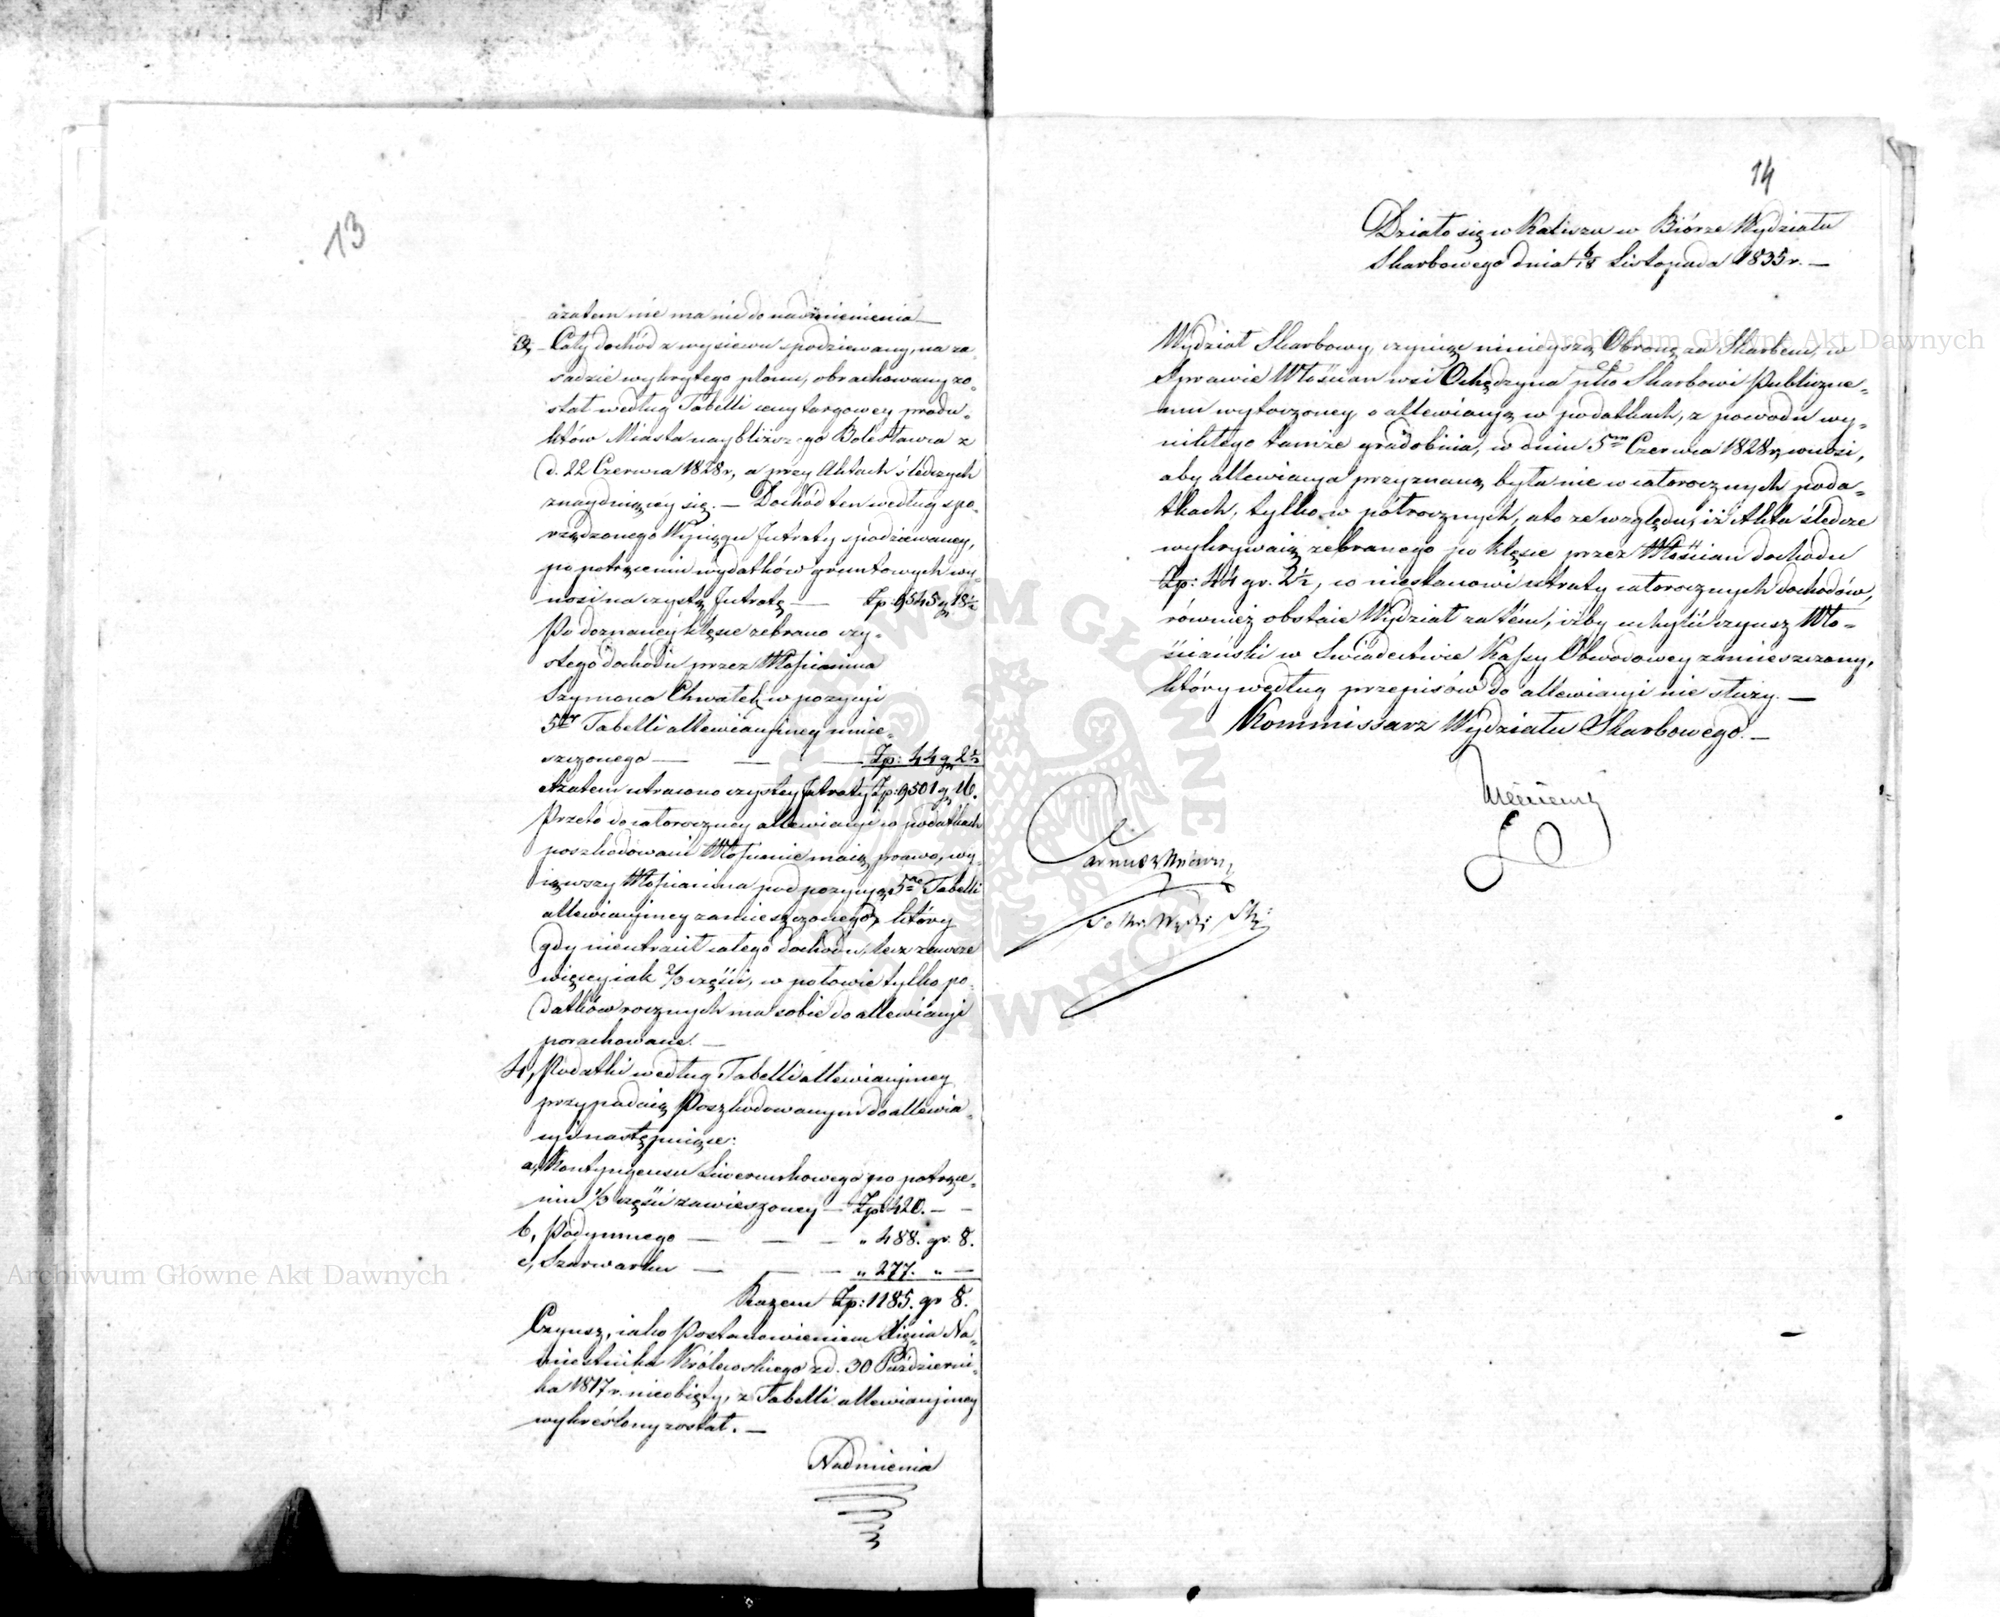 13
azatem nie ma nic do nadmienienia —
3, Cały dochód z wysiewu spodziewany, na za-
sadzie wykrytego plonu, obrachowany zo-
stał według Tabelli ceny targowey produ-
któw Miasta naybliższego Bolesławca z
d. 22 Czerwca 1828 r, a przy Aktach śledczych
znayduiącey się. — Dochód ten według spo-
rządzonego Wyciągu Intraty spodziewaney,
po potrąceniu wydatków gruntowych wy-
nosi na czystą Intratę — Zp: 9545 gr 18½
Po doznaney klęsce zebrano czy-
stego dochodu przez Włościanina
Szymona Chwałek w pozycyi
5ey Tabelli allewiacyiney umie-
szczonego — — — Zp: 44 gr 2½
Azatem utracono czystey Intraty Zp: 9501 gr 16.
Przeto do całoroczney allewiacyi w podatkach
poszkodowani Włościanie maią prawo, wy-
iąwszy Włościanina pod pozycyą 5tą Tabelli
allewiacyiney zamieszczonego, który
gdy nieutracił całego dochodu, lecz zawsze
więcey iak 2/3 części, w połowie tylko po-
datków rocznych ma sobie do allewiacyi
porachowane. —
4, Podatki według Tabelli allewiacyiney
przypadaią Poszkodowanym do allewia-
cyi następuiące:
a, Kontyngensu Liwerunkowego po potrące-
niu 1/3 części zawieszoney — Zp: 420. — —
b, Podymnego — — — „ 488. gr. 8.
c, Szarwarku — — — „ 277. „ —
Razem Zp: 1185. gr 8.
Czynsz, iako Postanowieniem Xięcia Na-
miestnika Królewskiego z d. 30 Październi-
ka 1817 r. nieobięty, z Tabelli allewiacyiney
wykreślony został. —
Nadmienia
14
Działo się w Kaliszu w Biórze Wydziału
Skarbowego dnia 6/18 Listopada 1835 r. —
Wydział Skarbowy, czyniąc ninieyszą Obronę za Skarbem, w
Sprawie Włościan wsi Ochędzyna pko Skarbowi Publiczne-
mu wytoczoney o allewiacyą w podatkach, z powodu wy-
nikłego tamże gradobicia, w dniu 5m Czerwca 1828 r, wnosi,
aby allewiacya przyznaną była nie w całorocznych poda-
tkach, tylko w półrocznych, a to ze względu, iż Akta śledcze
wykrywaią zebranego po klęsce przez Włościan dochodu
Zp: 44 gr. 2½, co niestanowi utraty całorocznych dochodów,
również obstaie Wydział za tém, iżby uchylić czynsz Wło-
ściański w Swiadectwie Kassy Obwodowey zamieszczony,
który według przepisów do allewiacyi nie służy. —
Kommissarz Wydziału Skarbowego. —
Archiwum Główne Akt Dawnych
Archiwum Główne Akt Dawnych